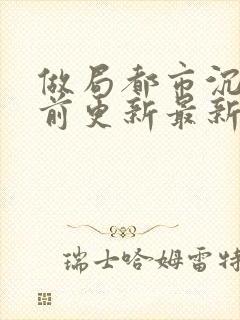 做局都市沉
前更新最新
瑞士哈姆雷特